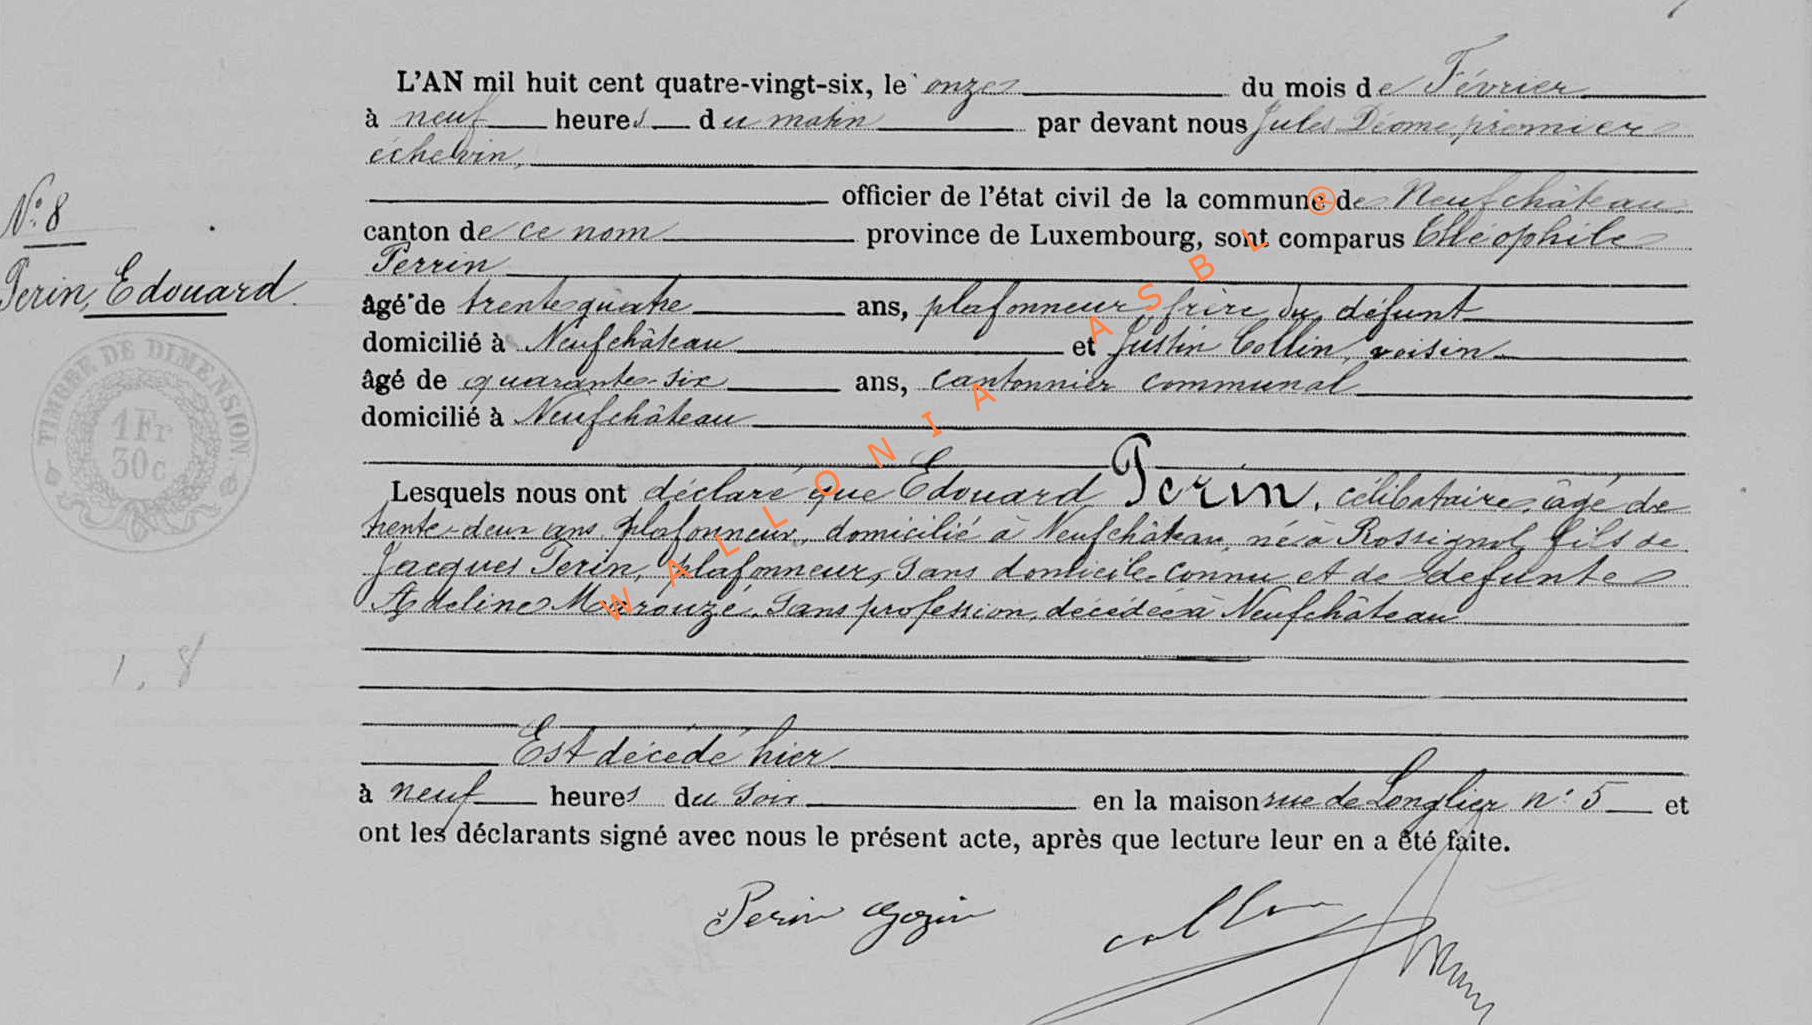 L'AN mil huit cent quatre-vingt-six, le onze du mois de Février
à neuf heures du matin par devant nous Jules Déome, premier
échevin,
officier de l'état civil de la commune de Neufchâteau,
canton de ce nom province de Luxembourg, sont comparus Théophile
Perrin
âgé de trente quatre ans, plafonneur, frère du défunt
domicilié à Neufchâteau et Justin Collin, voisin
âgé de quarante-six ans, cantonnier communal
domicilié à Neufchâteau
N° 8
Perin, Edouard.
TIMBRE DE DIMENSION
1 Fr
30c
Lesquels nous ont déclaré que Edouard Perin, célibataire, âgé de
trente-deux ans, plafonneur, domicilié à Neufchâteau, né à Rossignol, fils de
Jacques Perin, plafonneur, sans domicile connu et de défunte
Adeline Marouzé, sans profession, décédée à Neufchâteau
1, 8
Est décédé hier
à neuf heures du soir en la maison rue de Longlier n° 5 et
ont les déclarants signé avec nous le présent acte, après que lecture leur en a été faite.
Perin Gozin
Collin
WALLONIA ASBL ®